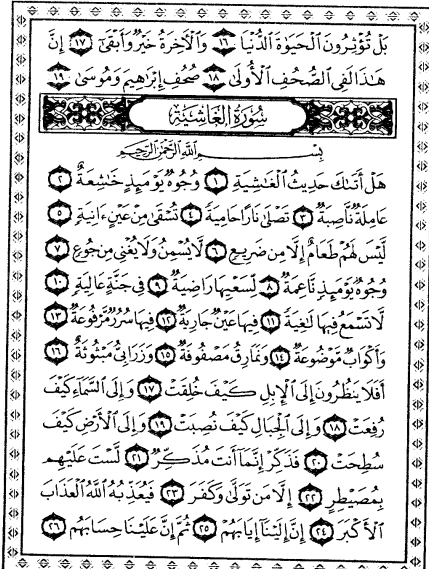 بَلْ تُؤْثِرُونَ الْحَيَوٰةَ الدُّنْيَا ١٦ وَالْآخِرَةُ خَيْرٌ وَأَبْقَىٰ ١٧ إِنَّ
هَٰذَا لَفِي الصُّحُفِ الْأُولَىٰ ١٨ صُحُفِ إِبْرَاهِيمَ وَمُوسَىٰ ١٩
سُورَةُ الْغَاشِيَةِ
بِسْمِ اللَّهِ الرَّحْمَٰنِ الرَّحِيمِ
هَلْ أَتَىٰكَ حَدِيثُ الْغَٰشِيَةِ ١ وُجُوهٌ يَوْمَئِذٍ خَٰشِعَةٌ ٢
عَامِلَةٌ نَّاصِبَةٌ ٣ تَصْلَىٰ نَارًا حَامِيَةً ٤ تُسْقَىٰ مِنْ عَيْنٍ ءَانِيَةٍ ٥
لَّيْسَ لَهُمْ طَعَامٌ إِلَّا مِن ضَرِيعٍ ٦ لَّا يُسْمِنُ وَلَا يُغْنِي مِن جُوعٍ ٧
وُجُوهٌ يَوْمَئِذٍ نَّاعِمَةٌ ٨ لِّسَعْيِهَا رَاضِيَةٌ ٩ فِي جَنَّةٍ عَالِيَةٍ ١٠
لَّا تَسْمَعُ فِيهَا لَٰغِيَةً ١١ فِيهَا عَيْنٌ جَارِيَةٌ ١٢ فِيهَا سُرُرٌ مَّرْفُوعَةٌ ١٣
وَأَكْوَابٌ مَّوْضُوعَةٌ ١٤ وَنَمَارِقُ مَصْفُوفَةٌ ١٥ وَزَرَابِيُّ مَبْثُوثَةٌ ١٦
أَفَلَا يَنظُرُونَ إِلَى الْإِبِلِ كَيْفَ خُلِقَتْ ١٧ وَإِلَى السَّمَاءِ كَيْفَ
رُفِعَتْ ١٨ وَإِلَى الْجِبَالِ كَيْفَ نُصِبَتْ ١٩ وَإِلَى الْأَرْضِ كَيْفَ
سُطِحَتْ ٢٠ فَذَكِّرْ إِنَّمَا أَنتَ مُذَكِّرٌ ٢١ لَّسْتَ عَلَيْهِم
بِمُصَيْطِرٍ ٢٢ إِلَّا مَن تَوَلَّىٰ وَكَفَرَ ٢٣ فَيُعَذِّبُهُ اللَّهُ الْعَذَابَ
الْأَكْبَرَ ٢٤ إِنَّ إِلَيْنَا إِيَابَهُمْ ٢٥ ثُمَّ إِنَّ عَلَيْنَا حِسَابَهُم ٢٦